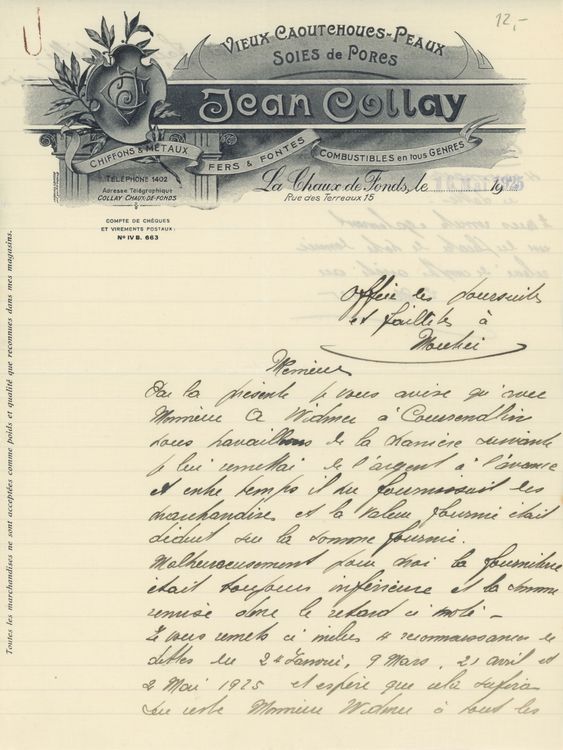 12,-
VIEUX CAOUTCHOUCS-PEAUX
SOIES de PORCS
Jean Collay
CHIFFONS & MÉTAUX
FERS & FONTES
COMBUSTIBLES en tous GENRES
TÉLÉPHONE 1402
Adresse Télégraphique
COLLAY CHAUX-DE-FONDS
La Chaux de Fonds, le 19
Rue des Terreaux 15
COMPTE DE CHÈQUES
ET VIREMENTS POSTAUX:
No IV B. 663
Toutes les marchandises ne sont acceptées comme poids et qualité que reconnues dans mes magasins.
Office des poursuites
et faillites à
Moutier
Messieurs
Par la présente je vous avise qu'avec
Monsieur A Widmer à Courrendlin
nous travaillons de la manière suivante
je lui remettai de l'argent à l'avance
et entre temps il me fournissait des
marchandises et la valeur fournie était
déduit sur la somme fournie.
Malheureusement pour moi la fourniture
était toujours inférieure et la somme
remise donc le retard ci noté -
Je vous remets ci inclus 4 reconnaissances de
dettes du 24 Janvié, 9 Mars, 21 avril et
2 Mai 1925 et espère que celà sufira
du reste Monsieur Widmer à tout les